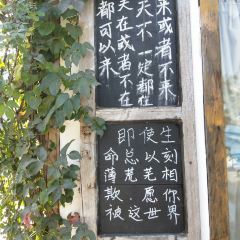 来或者不来
天不一定都在
天在或者不在
都可以来
即使生
命总以刻
薄荒芜相
欺.愿你
被这世界